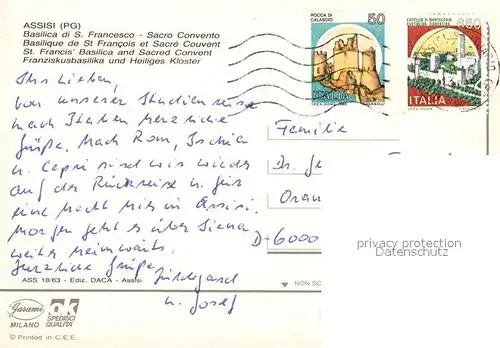 ASSISI (PG)
Basilica di S. Francesco - Sacro Convento
Basilique de St François et Sacré Couvent
St. Francis' Basilica and Sacred Convent
Franziskusbasilika und Heiliges Kloster
ROCCA DI CALASCIO
50
ITALIA
CASTELLO DI MONTECCHIO
CASTIGLION FIORENTINO
850
ITALIA
Ihr Lieben,
von unserer Studienreise
nach Italien herzliche
Grüße. Nach Rom, Ischia
u. Capri sind wir wieder
auf der Rückreise u. für
eine Nacht hier in Assisi.
Morgen geht es über Siena
weiter heimwärts.
Herzliche Grüße
Hildegard
u. Josef
Familie
Dr.
D-6000
privacy protection
Datenschutz
ASS 18/63 - Ediz. DACA - Assisi
NON SC
Garami
MILANO
OK
SPEDISCI
QUALITA'
© Printed in C.E.E.